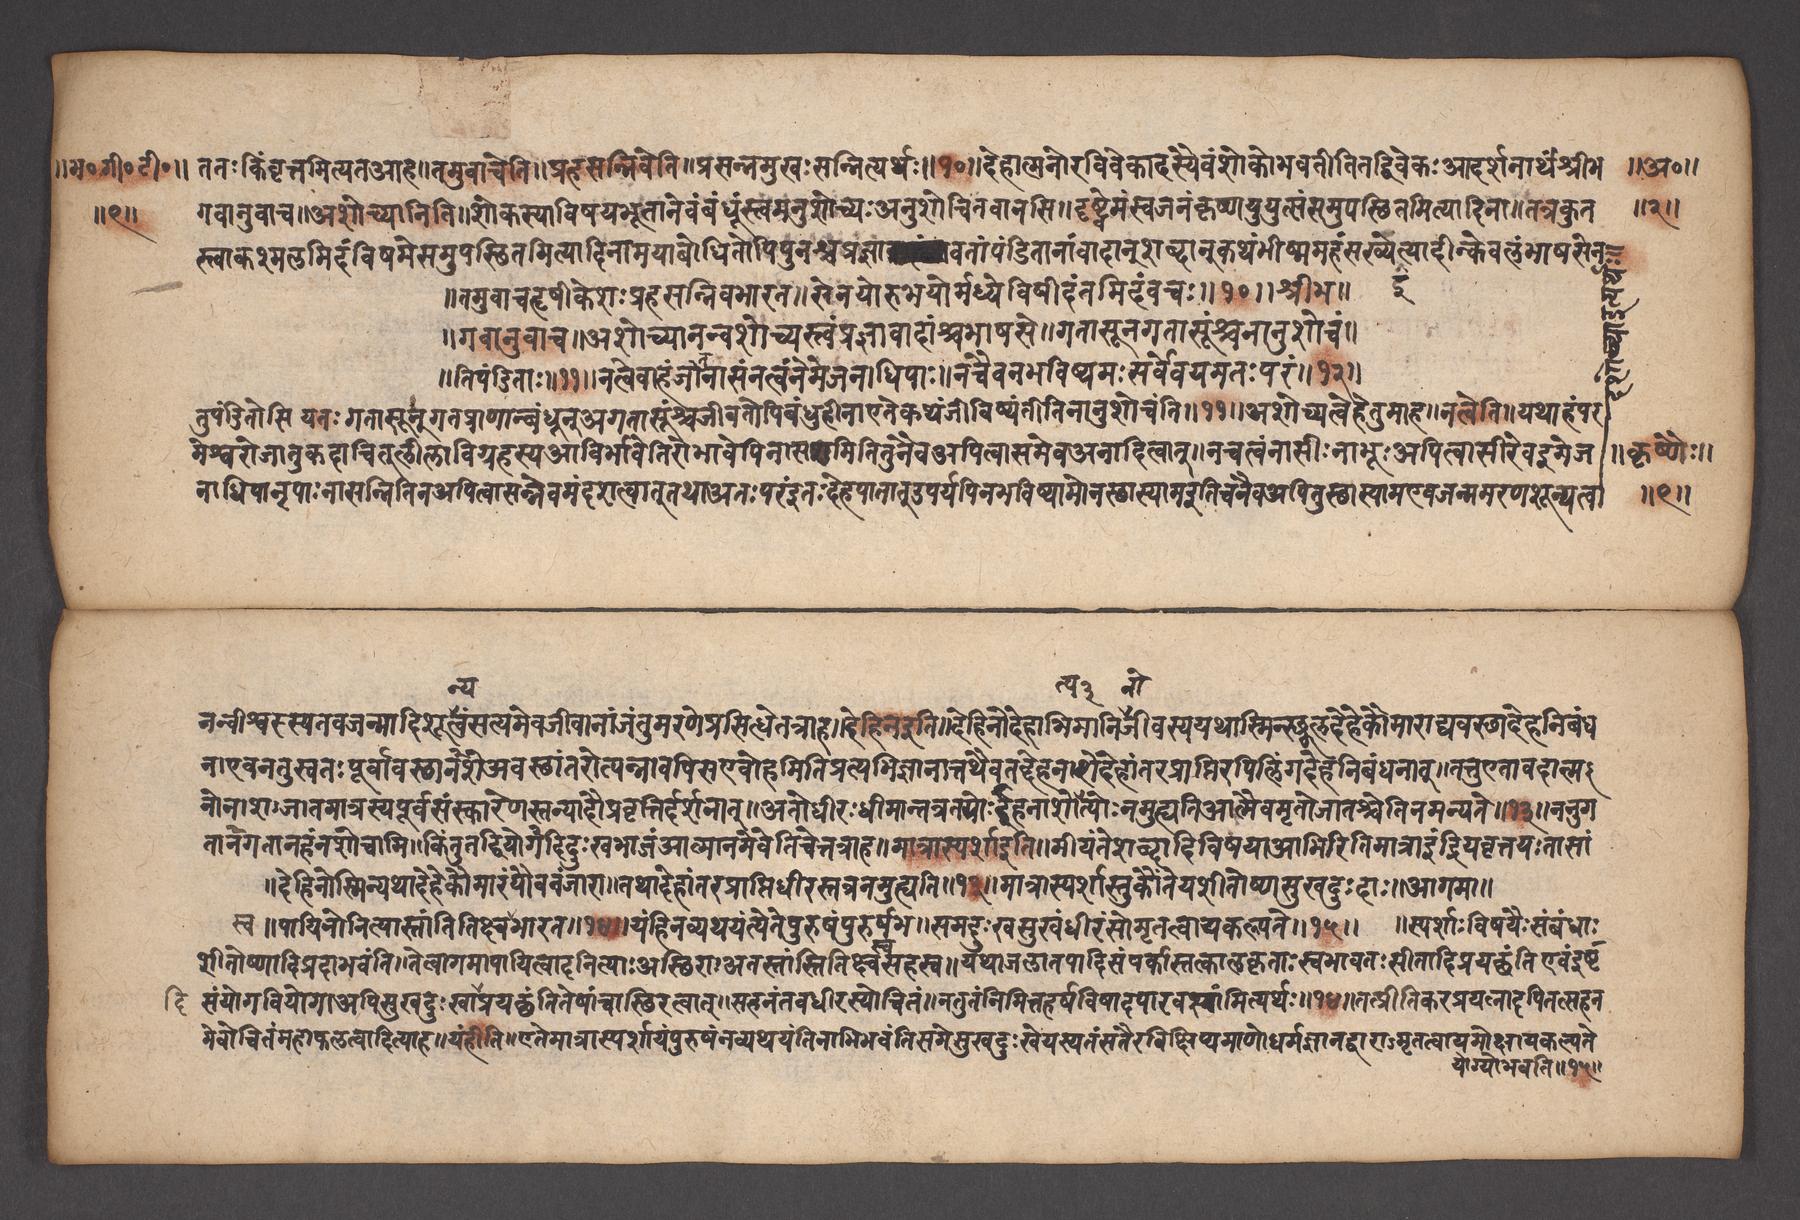 ॥भ०गी०टी०॥ ततःकिंवृत्तमित्यतआह॥तमुवाचेति॥प्रहसन्निवेति॥प्रसन्नमुखःसन्नित्यर्थः॥१०॥देहात्मनोरविवेकादस्यैवंशोकोभवतीतितद्विवेकःआदर्शनार्थंश्रीभ ॥अ०॥
॥९॥ गवानुवाच॥अशोच्यानिति॥शोकस्याविषयभूतानेवंबंधूंस्त्वमनुशोच्यःअनुशोचितवानसि॥दृष्ट्वेमंस्वजनंकृष्णयुयुत्सुंसमुपस्थितमित्यादिना॥तत्रकुत ॥२॥
स्त्वाकश्मलमिदंविषमेसमुपस्थितमित्यादिनामयाबोधितोपिपुनश्चप्रज्ञावतांपंडितानांवादान्शब्दान्कथंभीष्ममहंसख्येत्यादीन्केवलंभाषसेन
॥तमुवाचहृषीकेशःप्रहसन्निवभारत॥सेनयोरुभयोर्मध्येविषीदंतमिदंवचः॥१०॥श्रीभ॥
॥गवानुवाच॥अशोच्यानन्वशोच्यस्त्वंप्रज्ञावादांश्चभाषसे॥गतासूनगतासूंश्चनानुशोचं॥
॥तिपंडिताः॥११॥नत्वेवाहंजातुनासंनत्वंनेमेजनाधिपाः॥नचैवनभविष्यमःसर्वेवयमतःपरं॥१२॥
तुपंडितोसि यतःगतासून्गतप्राणान्बंधून्अगतासूंश्चजीवतोपिबंधुहीनाएतेकथंजीविष्यंतीतिनानुशोचंति॥११॥अशोच्यत्वेहेतुमाह॥नत्वेति॥यथाहंपर
मेश्वरोजातुकदाचित्लीलाविग्रहस्यआविर्भावेतिरोभावेपिनासमितितुनैवअपित्वासमेवअनादित्वात्॥नचत्वंनासीःनाभूःअपित्वासीरेवइमेज ॥कृष्णः॥
नाधिपानृपाःनासन्नितिनअपित्वासन्नेवमदंशत्वात्तथाअतःपरंइतःदेहपातात्उपर्यपिनभविष्यामोनस्थास्यामइतिचनैवअपितुस्थास्यामएवजन्ममरणशून्यत्वा ॥९॥
न्य त्य३ नो
नन्वीश्वरस्यतवजन्मादिशूत्वंसत्यमेवजीवानांजंतुमरणेप्रसिद्धेतत्राह॥देहिनइति॥देहिनोदेहाभिमानिजीवस्ययथास्मिन्स्थूलदेहेकौमाराद्यवस्थादेहनिबंध
नाएवनतुस्वतःपूर्वावस्थानाशेअवस्थांतरोत्पन्नावपिसएवाहमितिप्रत्यभिज्ञानात्तथैवतद्देहनाशेदेहांतरप्राप्तिरपिलिंगदेहनिबंधनात्॥तत्तुएतावदात्म
नोनाशःजातमात्रस्यपूर्वसंस्कारेणस्तन्यादौप्रवृत्तिर्दर्शनात्॥अतोधीरःधीमान्तत्रतयोःदेहनाशोत्पत्योःनमुह्यतिआत्मैवमृतोजातश्चेतिनमन्यते॥१३॥ननुग
तानगतान्नहंनशोचामि॥किंतुतद्वियोगादिदुःखभाजंआत्मानमेवेतिचेत्तत्राह॥मात्रास्पर्शाइति॥मीयंतेशब्दादिविषयाआभिरितिमात्राइंद्रियवृत्तयःतासां
॥देहिनोस्मिन्यथादेहेकौमारंयौवनंजरा॥तथादेहांतरप्राप्तिधीरस्तत्रनमुह्यति॥१३॥मात्रास्पर्शास्तुकौंतेयशीतोष्णसुखदुःदाः॥आगमा॥
स्व ॥पायिनोनित्यास्तांतितिक्ष्वभारत॥१४॥यंहिनव्यथयंत्येतेपुरुषंपुरुषर्षभ॥समदुःखसुखंधीरंसोमृतत्वायकल्पते॥१५॥ ॥स्पर्शाःविषयैःसंबंधाः
शीतोष्णादिप्रदाभवंति॥तेत्वागमापायित्वादनित्याःअस्थिराःअतस्तांस्तितिक्ष्वसहस्व॥यथाजलातपादिसंपर्कास्तत्कालकृताःस्वभावतःसीतादिप्रयछंतिएवंइष्ट
दि संयोगवियोगाअपिसुखदुःखाप्रयछंतितेषांचास्थिरत्वात्॥सहनंतवधीरस्योचितं॥नतुतंनिमित्तहर्षविषादपारवश्यामित्यर्थः॥१४॥तत्प्रीतिकरप्रयत्नादपितत्सहन
मेवोचितंमहाफलत्वादित्याह॥यंहीति॥एतेमात्रास्पर्शायंपुरुषंनव्यथयंतिनाभिभवंतिसमेसुखदुःखेयस्यतंसतैरविक्षिप्यमाणोधर्मज्ञानद्वाराऽमृतत्वायमोक्षायकल्पते
योग्योभवति॥१५॥